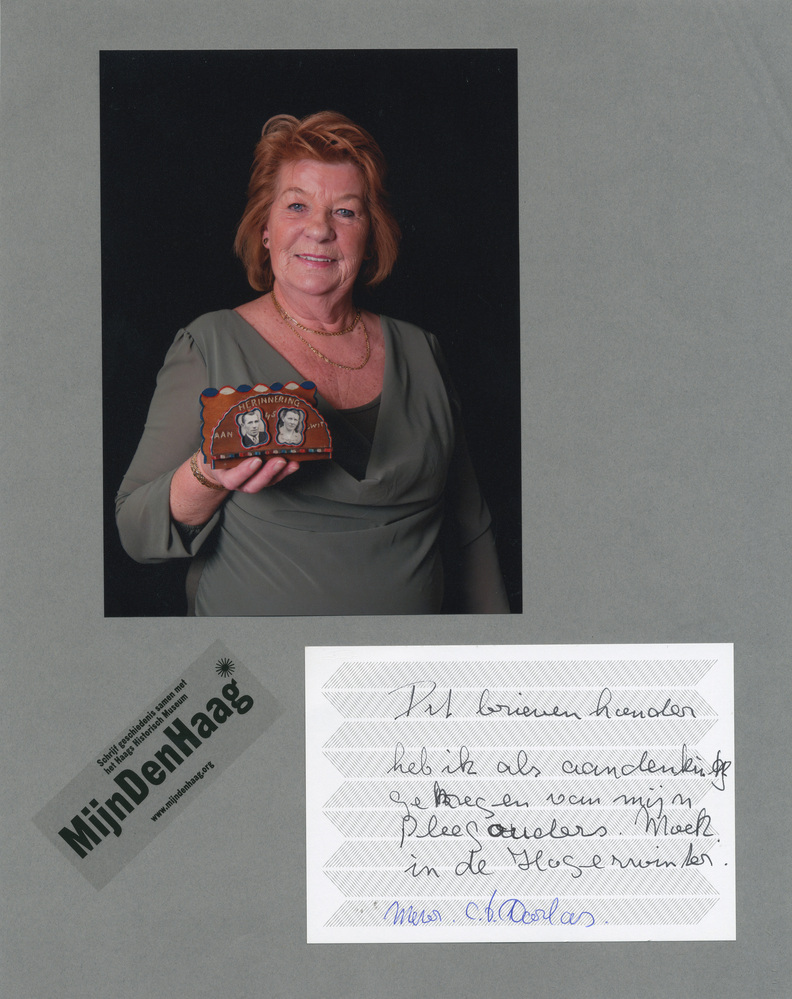 HERINNERING
AAN 45 WIT
Schrijf geschiedenis samen met
het Haags Historisch Museum
MijnDenHaag
www.mijndenhaag.org
Dit brieven houder
heb ik als aandenking
gekregen van mijn
pleegouders. Moek.
in de Hogerwinter.
Mevr.